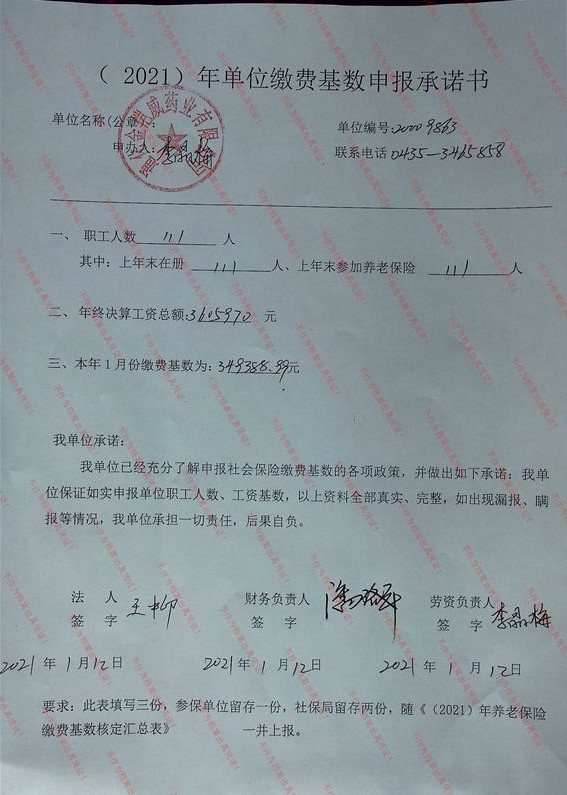 （ 2021）年单位缴费基数申报承诺书
单位名称(公章)
单位编号:20009863
申办人:李晶梅
联系电话 0435—3465858
一、 职工人数 111 人
其中：上年末在册 111 人、上年末参加养老保险 111 人
二、年终决算工资总额:3605970 元
三、本年1月份缴费基数为:349388.99元
我单位承诺:
我单位已经充分了解申报社会保险缴费基数的各项政策，并做出如下承诺：我单
位保证如实申报单位职工人数、工资基数，以上资料全部真实、完整，如出现漏报、瞒
报等情况，我单位承担一切责任，后果自负。
法 人 财务负责人 劳资负责人
签 字 王中印 签 字 签 字 李晶梅
2021 年 1 月 12 日 2021 年 1 月 12 日 2021 年 1 月 12 日
要求：此表填写三份，参保单位留存一份，社保局留存两份，随《（2021）年养老保险
缴费基数核定汇总表》 一并上报。